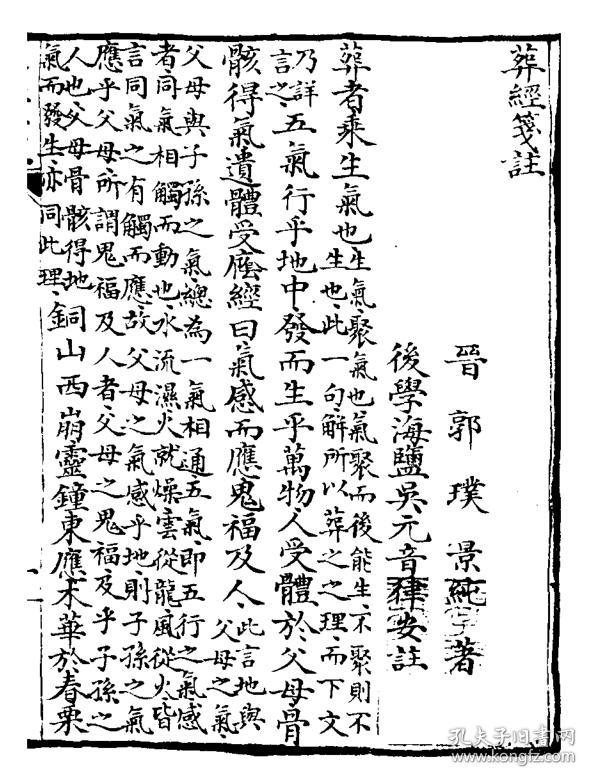 葬經箋註
晉郭璞景純著
後學海鹽吳元音律安註
葬者乘生氣也生氣聚氣也氣聚而後能生不聚則不
生也此一句解所以葬之之理而下文
乃詳
言之五氣行乎地中發而生乎萬物人受體於父母骨
骸得氣遺體受廕經曰氣感而應鬼福及人此言地與
父母之氣
父母與子孫之氣總為一氣相通五氣即五行之氣感
者同氣相觸而動也水流濕火就燥雲從龍風從火皆
言同氣之有觸而應故父母之氣感乎地則子孫之氣
應乎父母所謂鬼福及人者父母之鬼福及乎子孫之
人也父母骨骸得地
氣而發生亦同此理銅山西崩靈鐘東應木華於春栗
孔夫子旧书网
www.kongfz.com